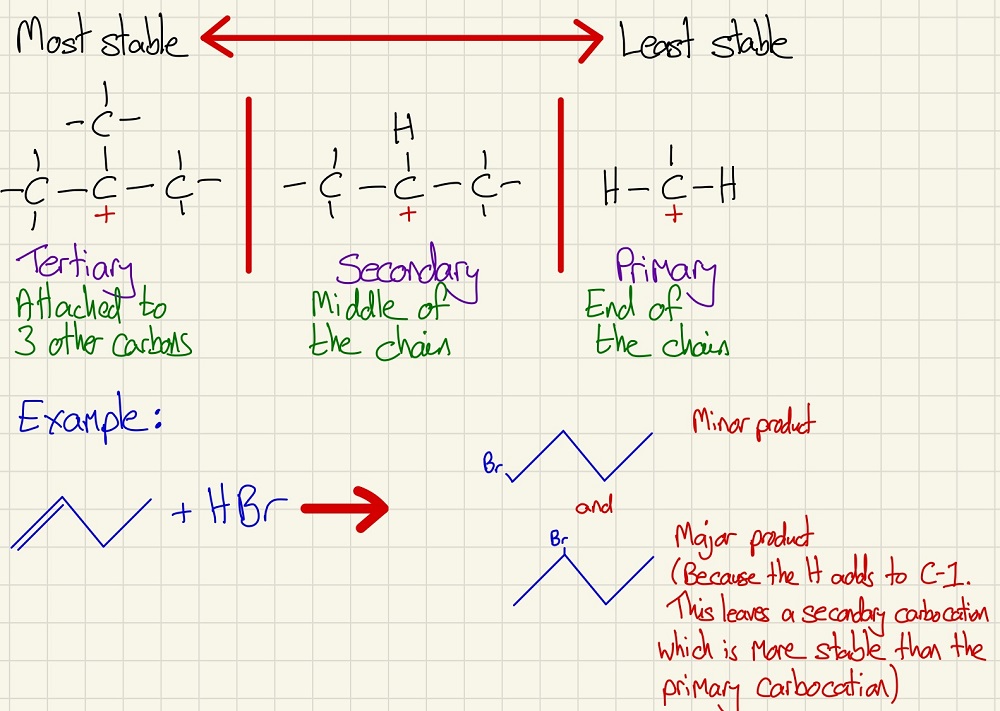 Most stable
Least stable
-C-
-C-C-C-
+
H
-C-C-C-
+
H-C-H
+
Tertiary
Attached to
3 other carbons
Secondary
Middle of
the chain
Primary
End of
the chain
Example:
+ HBr
Br
Minor product
and
Br
Major product
(Because the H adds to C-1.
This leaves a secondary carbocation
which is more stable than the
primary carbocation)